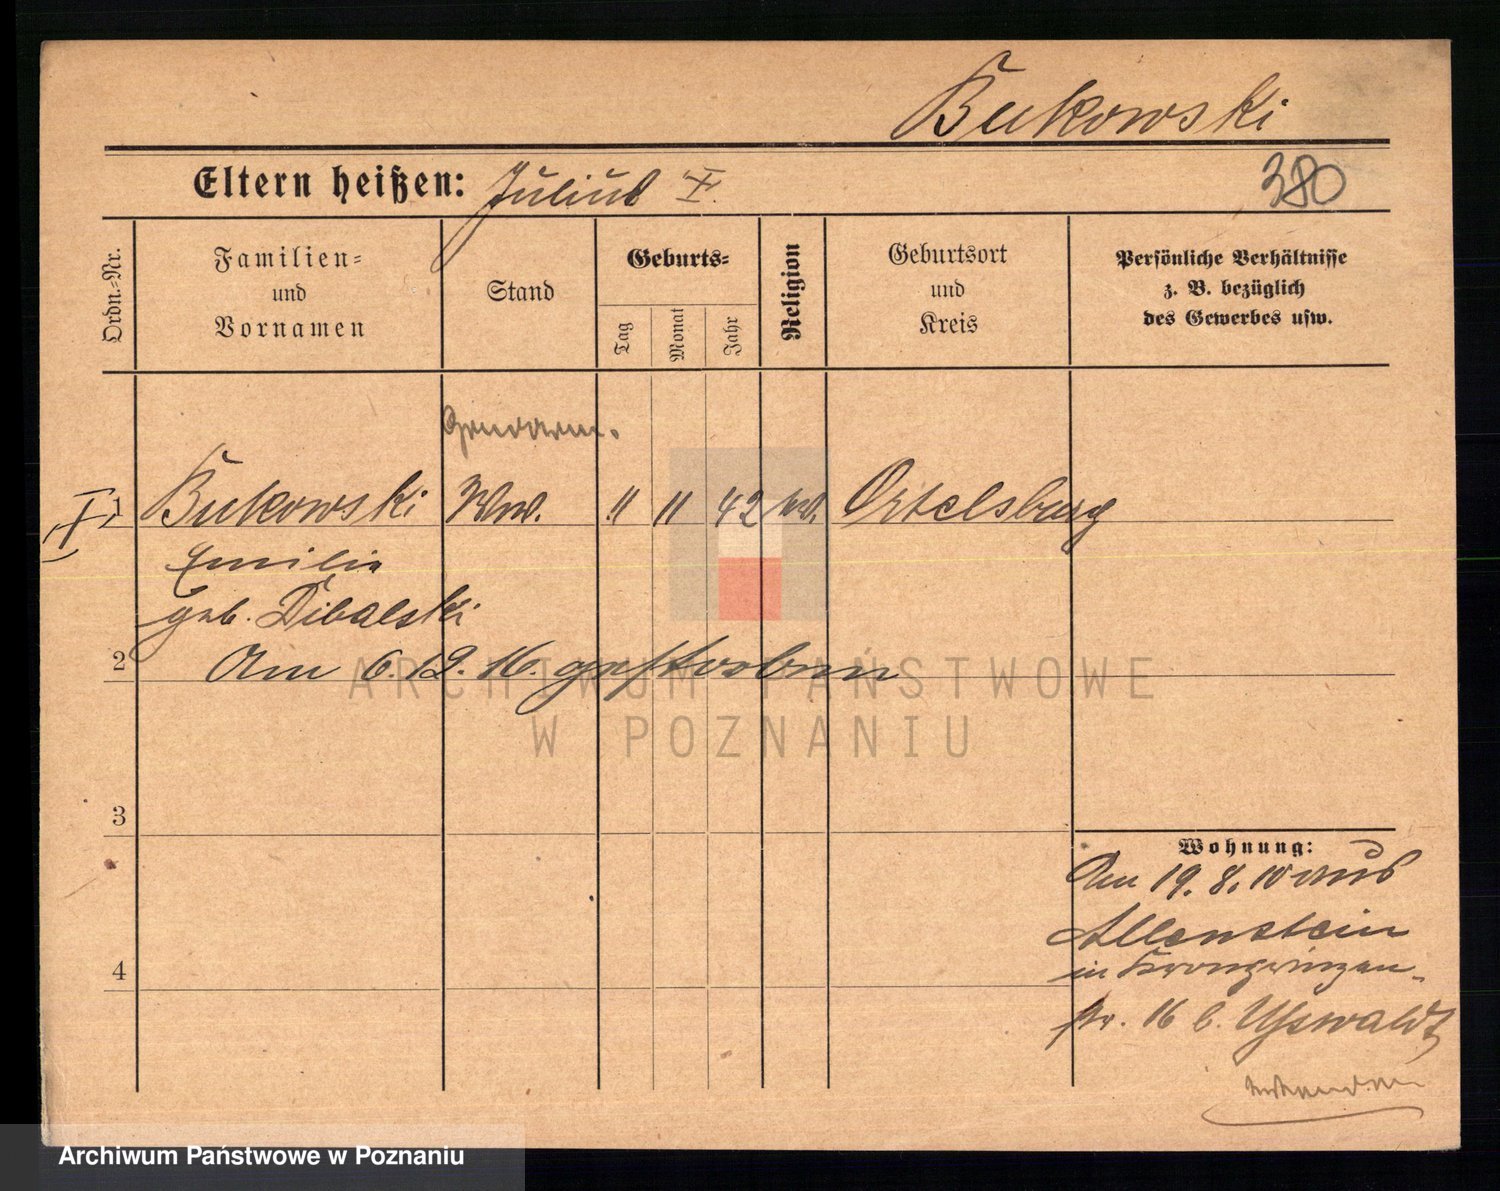 Bukowski
Eltern heißen: Julius
380
Ordn.-Nr.
Familien-
und
Vornamen
Stand
Geburts-
Tag
Monat
Jahr
Religion
Geburtsort
und
Kreis
Persönliche Verhältnisse
z. B. bezüglich
des Gewerbes usw.
Gendarm.
1 Bukowski Ww. " 11 42 Ortelsburg
Emilie
geb. Dibalski
2 Am 6.12.16. gestorben
3
Wohnung:
Am 19.8.10 aus
Allenstein
4
in Kronprinzen-
str. 16 b.
ARCHIWUM PAŃSTWOWE
W POZNANIU
Archiwum Państwowe w Poznaniu